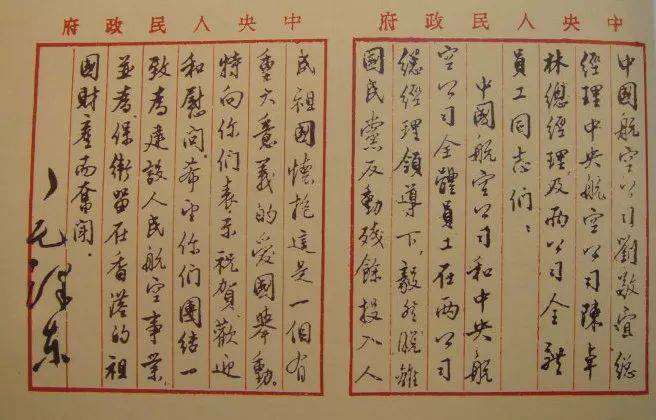 中央人民政府
中國航空公司劉敬宜總
經理中央航空公司陳卓
林總經理及兩公司全體
員工同志們：
中國航空公司和中央航
空公司全體員工在兩公司
總經理領導下，毅然脫離
國民黨反動殘餘投入人
中央人民政府
民祖國懷抱這是一個有
重大意義的愛國舉動。
特向你們表示祝賀，歡迎
和慰問。希望你們團結一
致為建設人民航空事業，
並為保衛留在香港的祖
國財產而奮鬥。
毛澤东